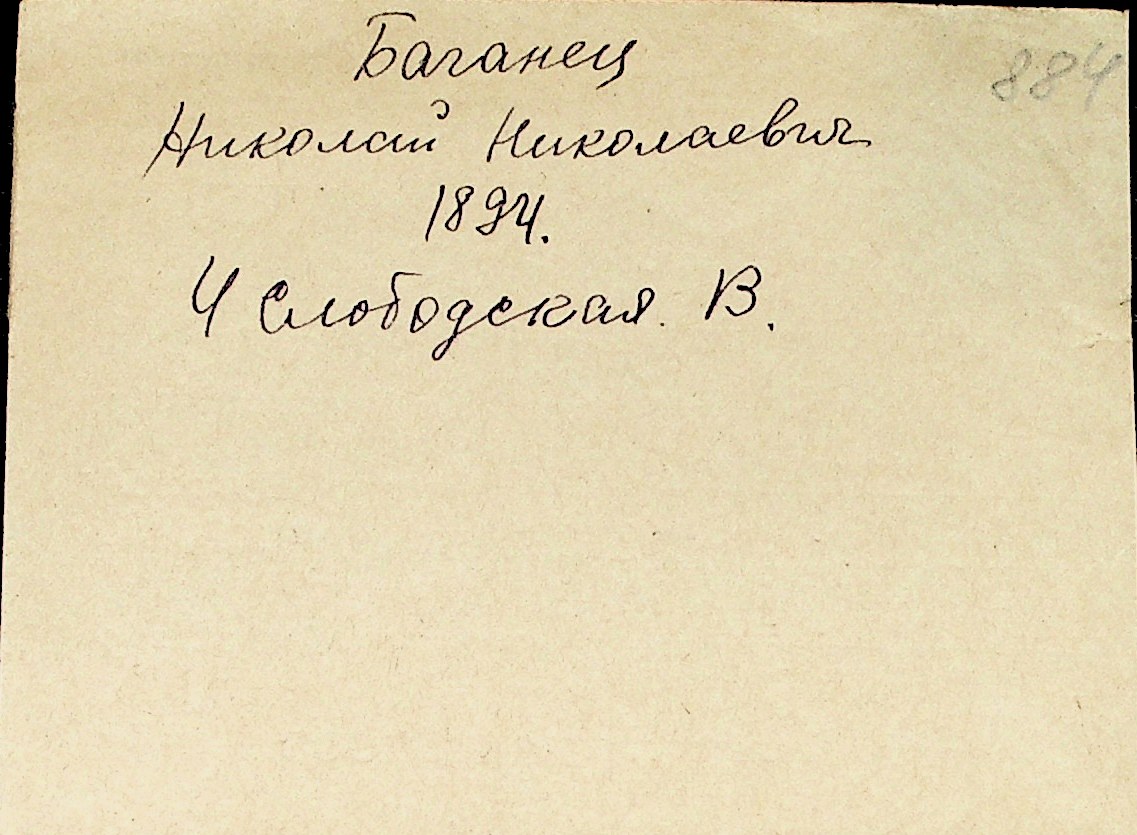 Баганец
884
Николай Николаевич
1894.
4 Слободская В.